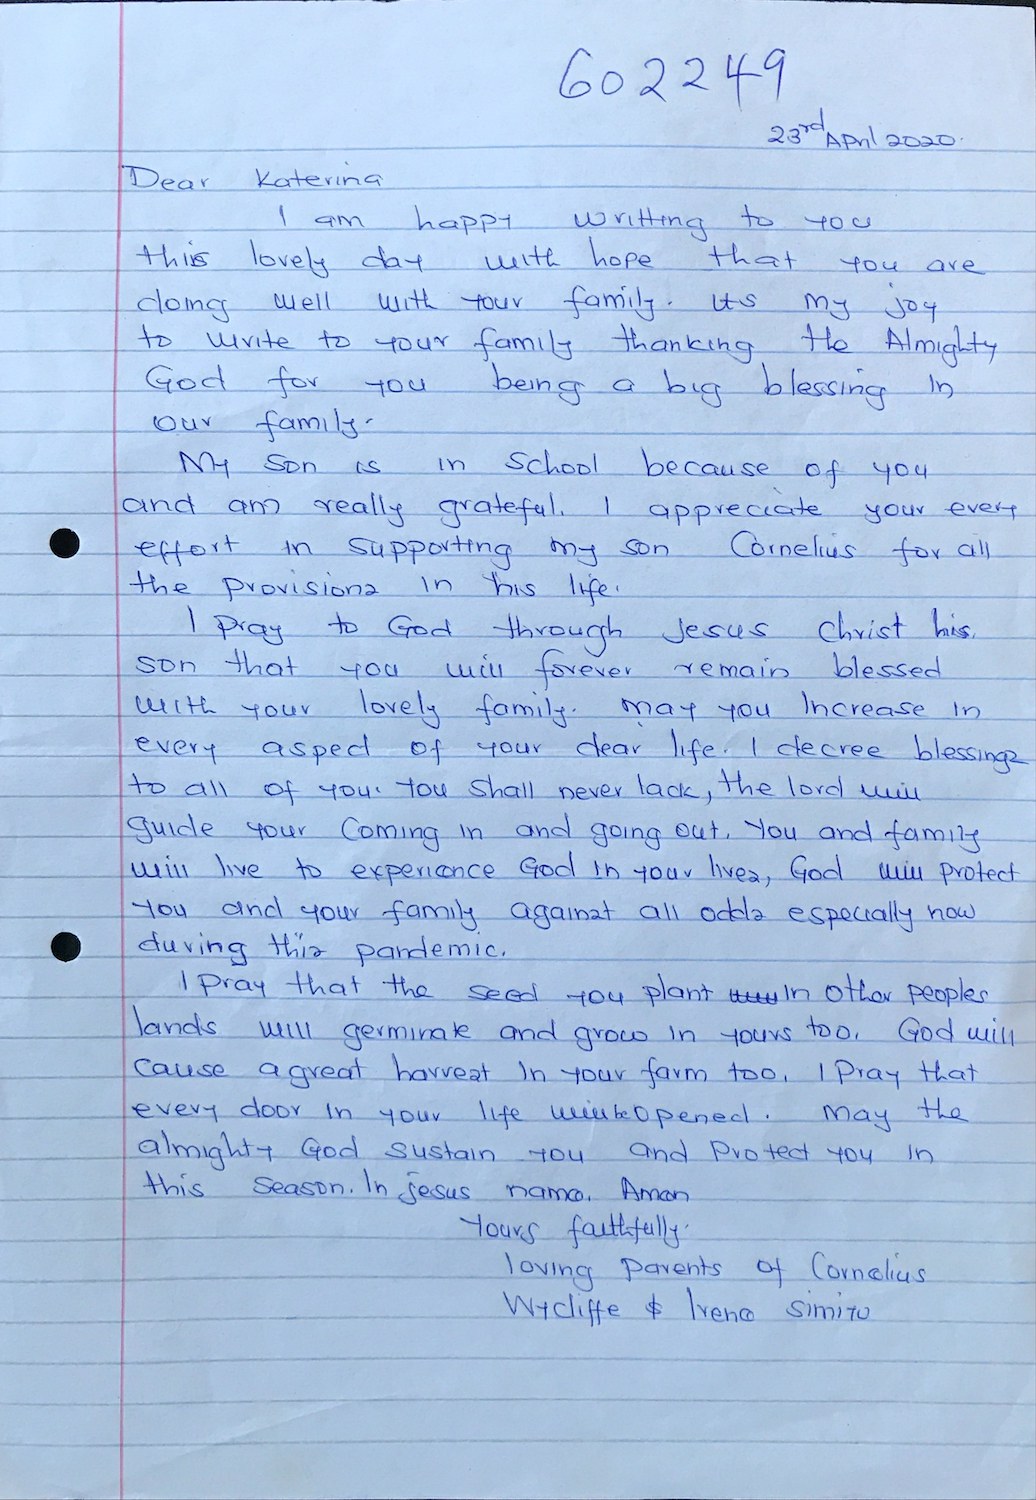 602249
23rd April 2020.
Dear Katerina
I am happy writting to you
this lovely day with hope that you are
doing well with your family. Its my joy
to write to your family thanking the Almighty
God for you being a big blessing in
our family.
My son is in school because of you
and am really grateful. I appreciate your every
effort in supporting my son Cornelius for all
the provisions in his life.
I pray to God through Jesus Christ his
son that you will forever remain blessed
with your lovely family. May you increase in
every aspect of your dear life. I decree blessings
to all of you. You shall never lack, the lord will
guide your coming in and going out. You and family
will live to experience God in your lives, God will protect
you and your family against all odds especially now
during this pandemic.
I pray that the seed you plant in other peoples
lands will germinate and grow in yours too. God will
cause a great harvest in your farm too. I pray that
every door in your life will be opened. May the
almighty God sustain you and protect you in
this season. In jesus name. Amen
Yours faithfully.
loving parents of Cornelius
Wycliffe & Irene Simiyu